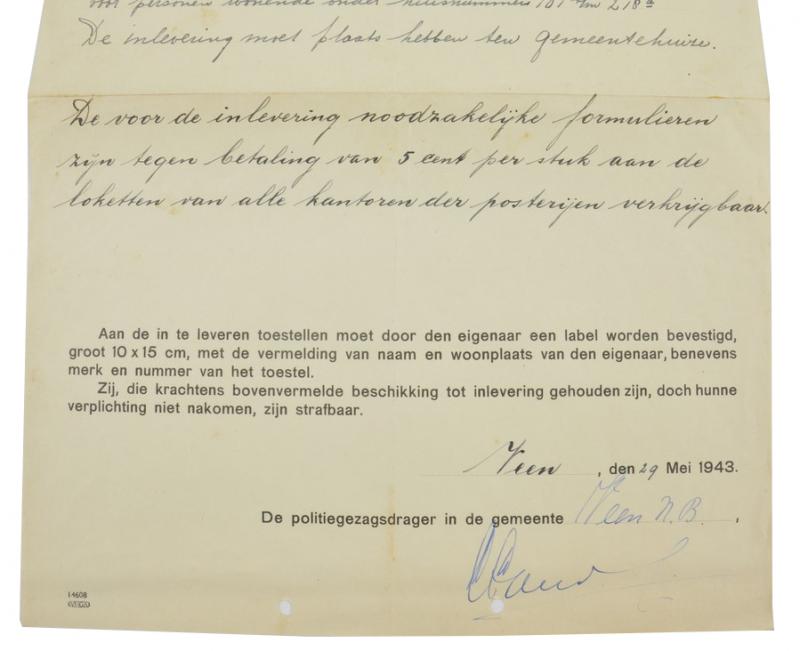 voor personen wonende onder huisnummers 101 t/m 218a
De inlevering moet plaats hebben ten gemeentehuize.
De voor de inlevering noodzakelijke formulieren
zijn tegen betaling van 5 cent per stuk aan de
loketten van alle kantoren der posterijen verkrijgbaar.
Aan de in te leveren toestellen moet door den eigenaar een label worden bevestigd,
groot 10 x 15 cm, met de vermelding van naam en woonplaats van den eigenaar, benevens
merk en nummer van het toestel.
Zij, die krachtens bovenvermelde beschikking tot inlevering gehouden zijn, doch hunne
verplichting niet nakomen, zijn strafbaar.
Veen, den 29 Mei 1943.
De politiegezagsdrager in de gemeente Veen N.B.
14608